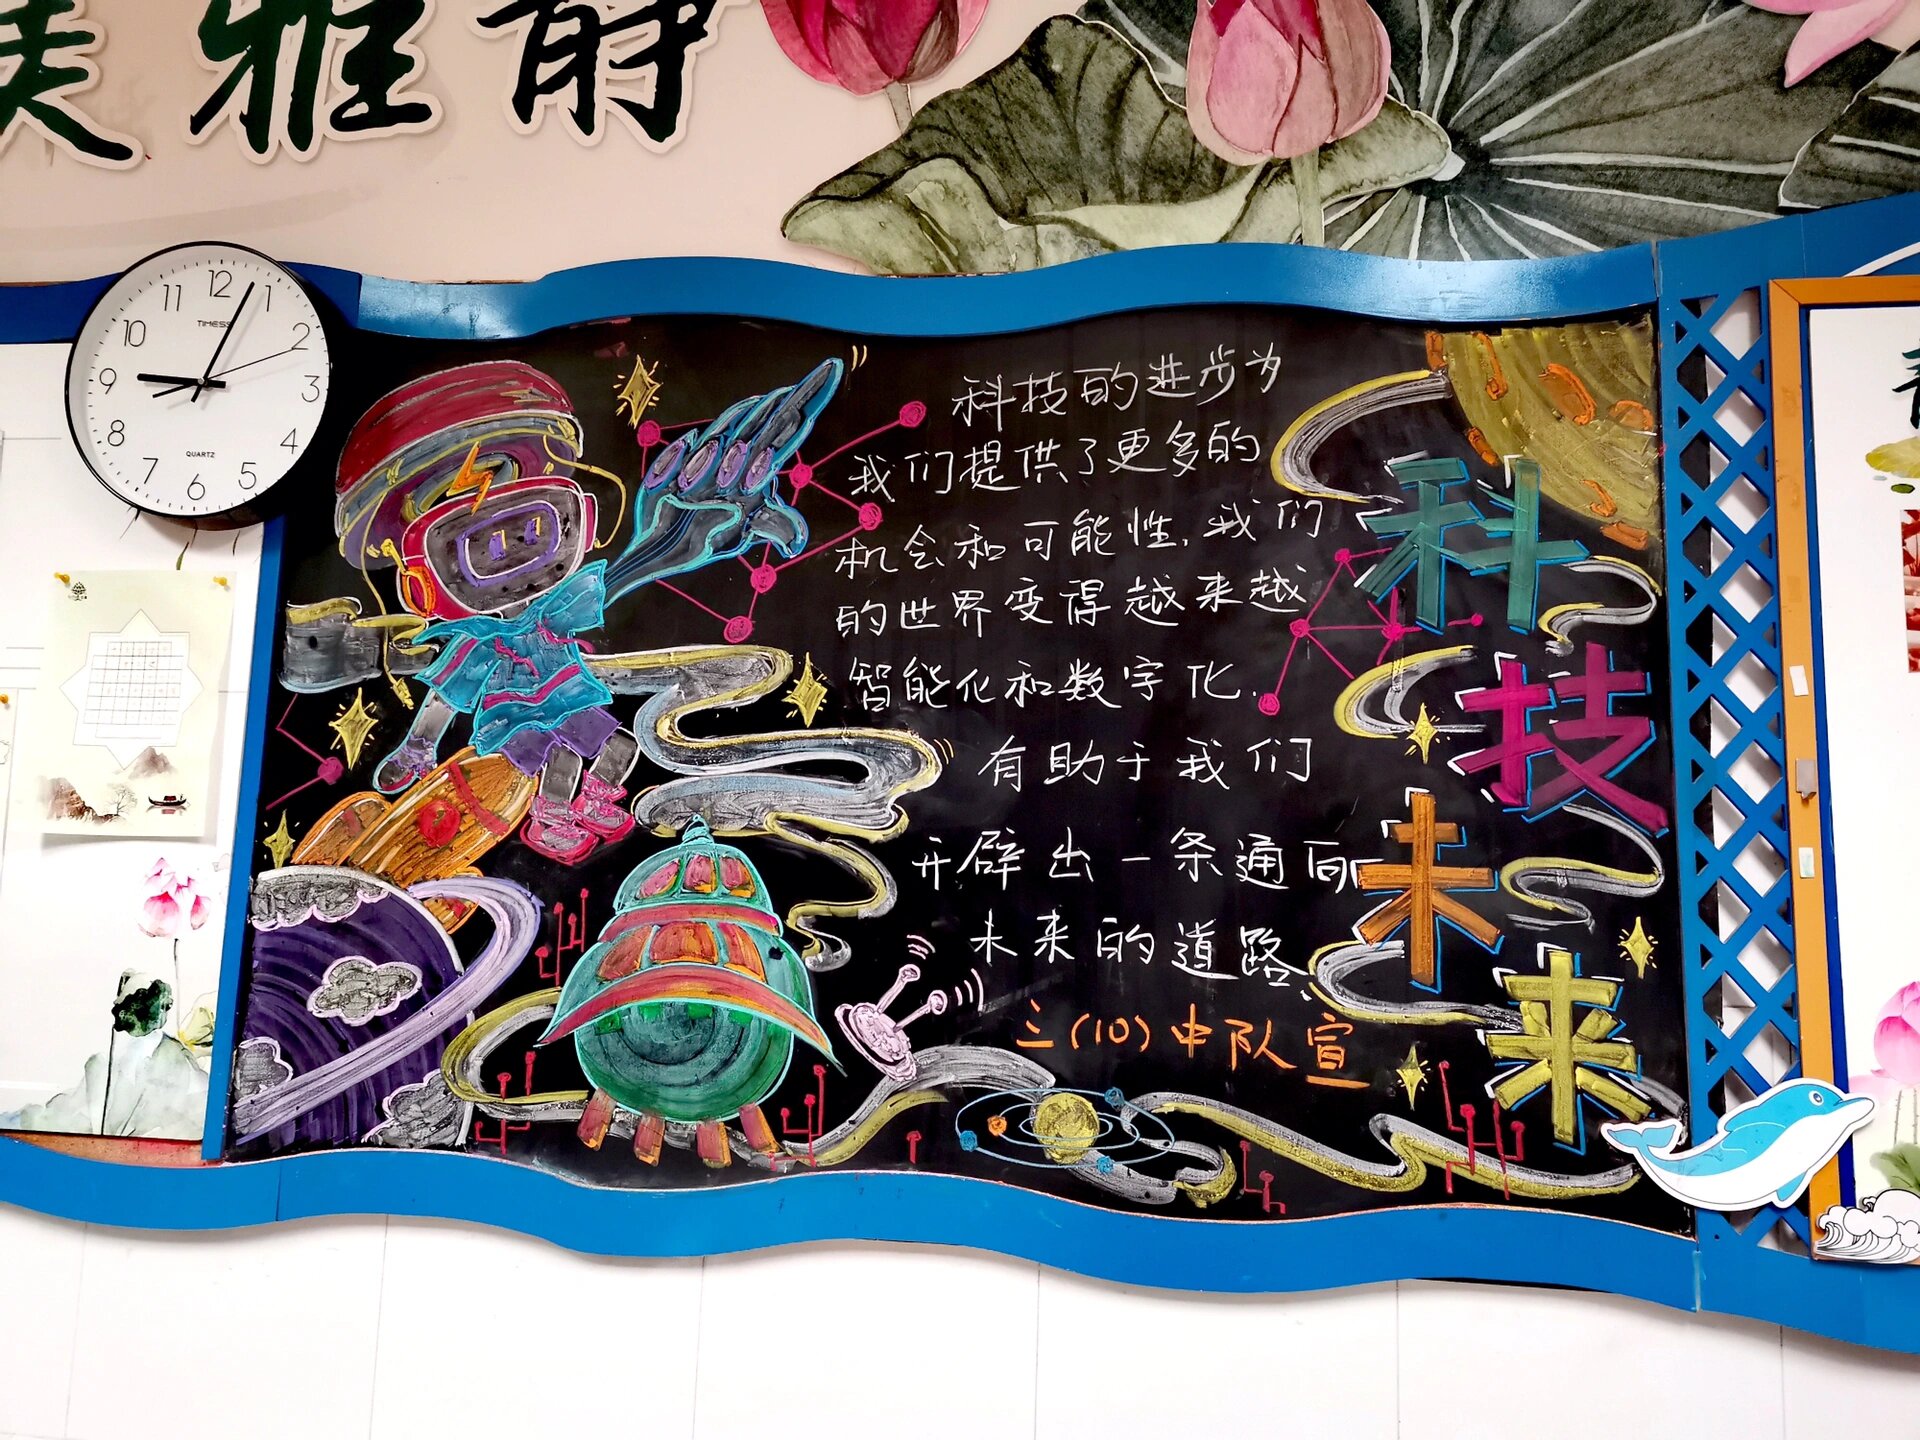 雅静
12
1
2
3
4
5
6
7
8
9
10
11
TIMESS
QUARTZ
科技的进步为
我们提供了更多的
机会和可能性,我们
的世界变得越来越
智能化和数字化.
有助于我们
开辟出一条通向
未来的道路.
三(10)中队宣
科技未来